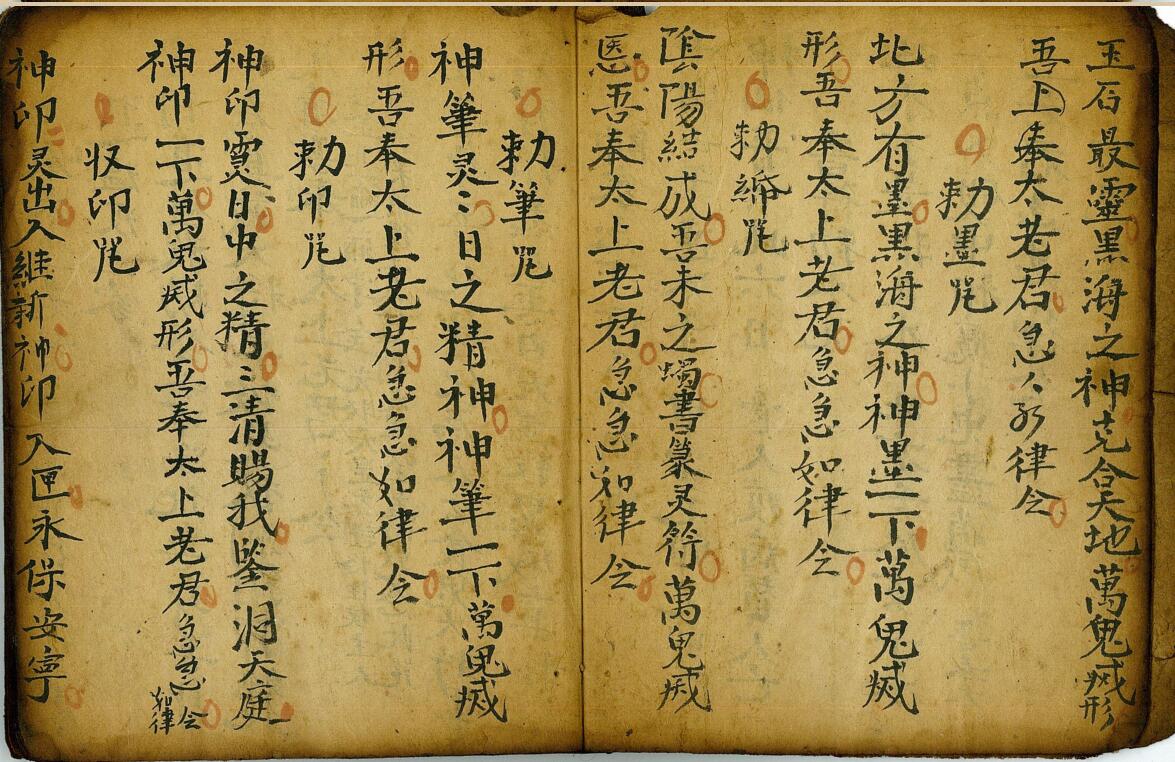 玉石最靈黑海之神克合天地萬鬼滅形
吾上奉太老君急〻如律令
勅墨咒
北方有墨黑海之神神墨一下萬鬼滅
形吾奉太上老君急急如律令
勅紙咒
陰陽結成吾未之蝎書篆灵符萬鬼滅
恖吾奉太上老君急急如律令
勅筆咒
神筆灵〻日之精神神筆一下萬鬼滅
形吾奉太上老君急急如律令
勅印咒
神印灵日中之精三清賜我鑒洞天庭
神印一下萬鬼滅形吾奉太上老君急急如律令
収印咒
神印灵出入維新神印入匣永保安寧